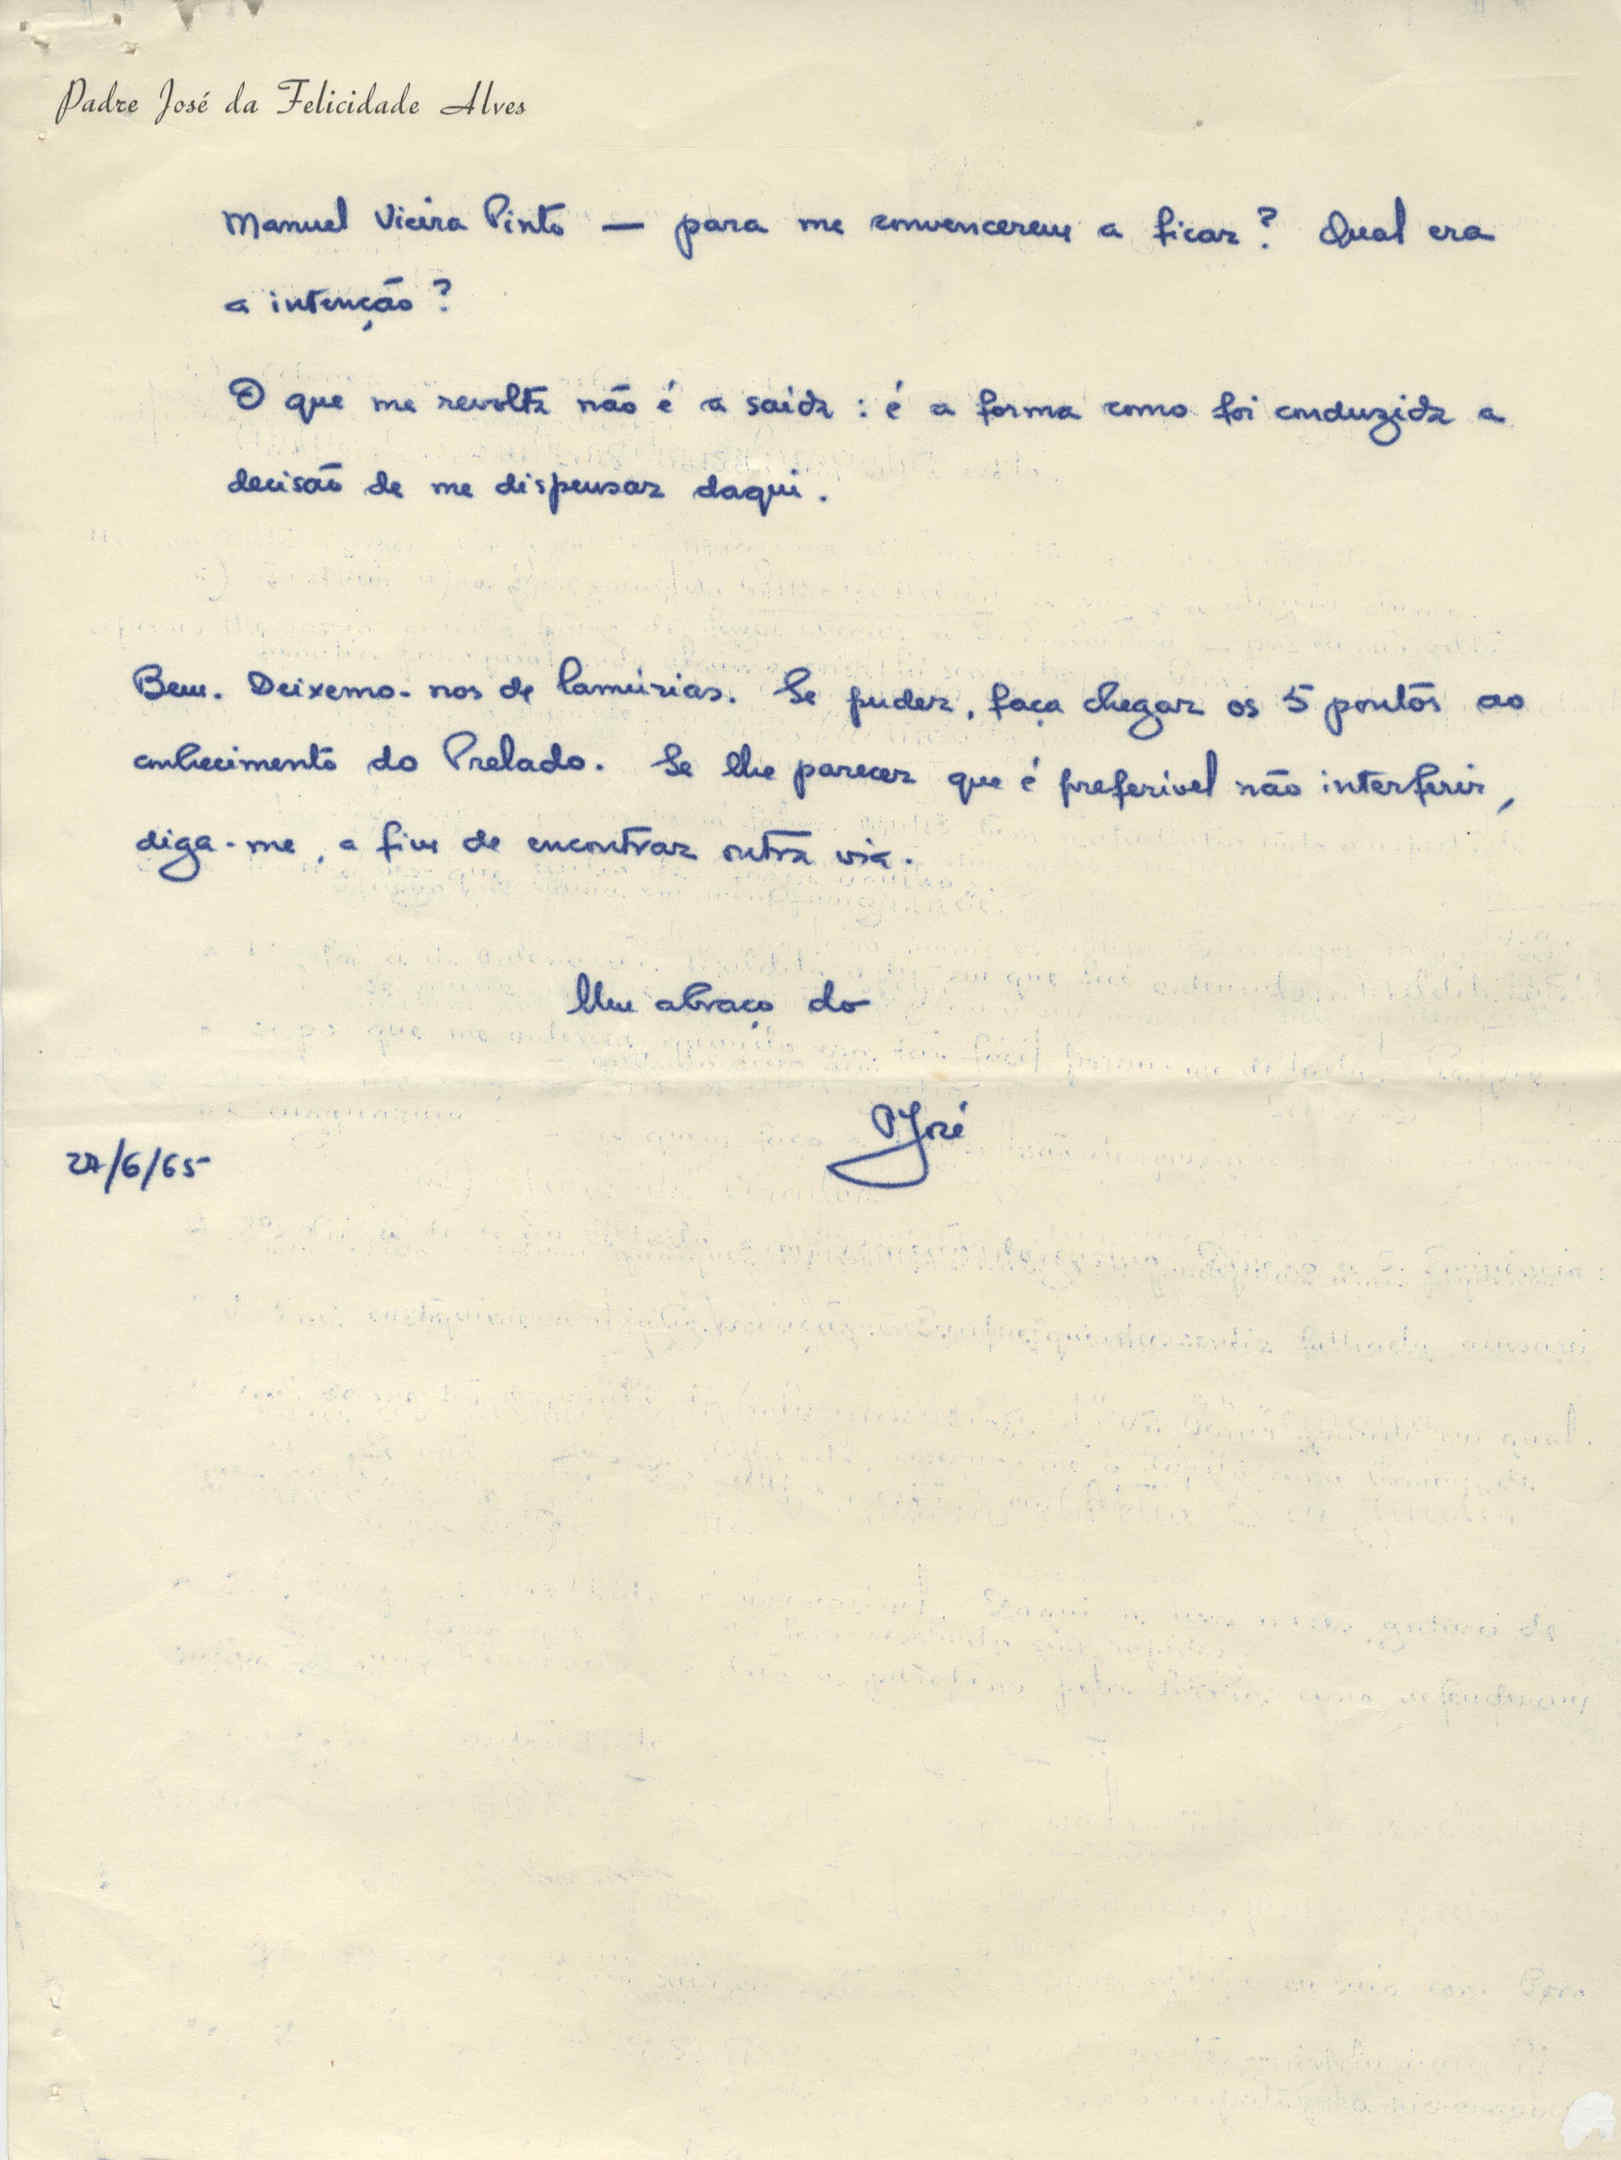 Padre José da Felicidade Alves
Manuel Vieira Pinto — para me convencerem a ficar? Qual era
a intenção?
O que me revolta não é a saída: é a forma como foi conduzida a
decisão de me dispensar daqui.
Bem. Deixemo-nos de lamúrias. Se puder, faça chegar os 5 pontos ao
conhecimento do Prelado. Se lhe parecer que é preferível não interferir,
diga-me, a fim de encontrar outra via.
Um abraço do
P. José
27/6/65